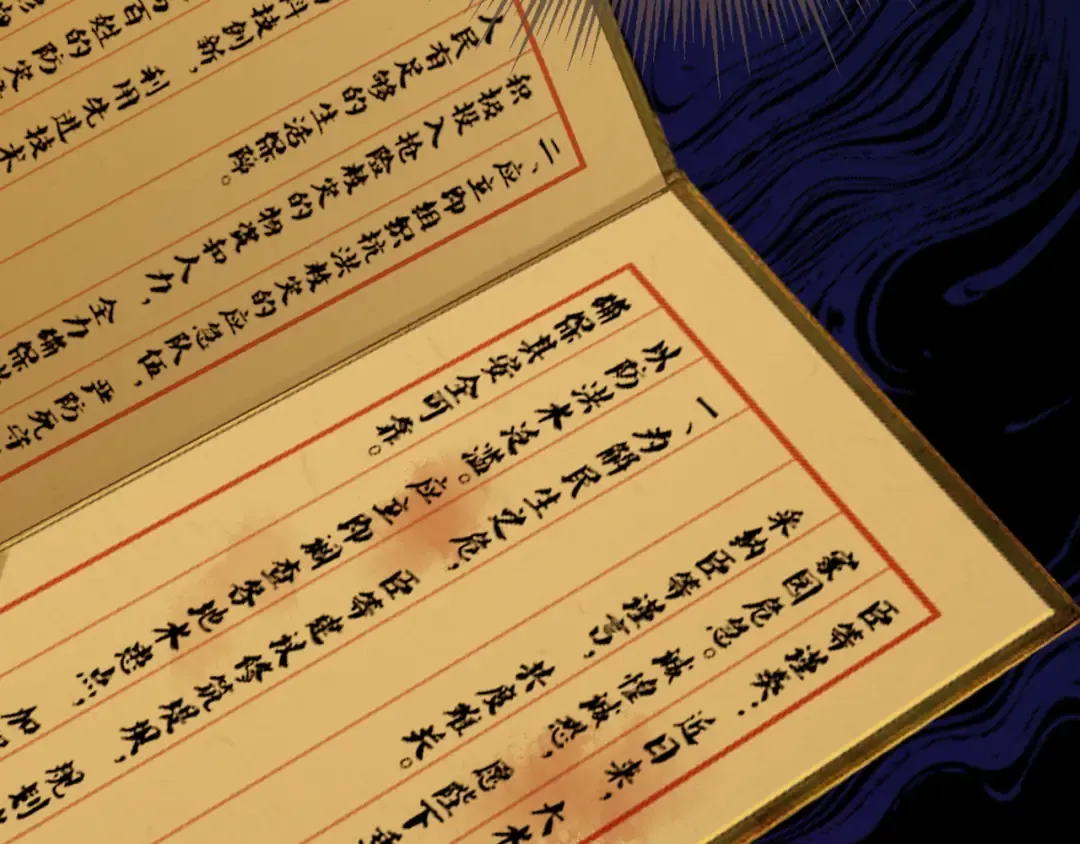 臣等谨奏：近日来，大水
家国危急。诚惶诚恐，愿陛下
采纳臣等谨言，共度难关。
一、为解民生之危，臣等建议修筑堤坝，规划
以防洪水泛滥。应立即调查各地水患点，加
确保其安全可靠。
二、应立即组织抗洪救灾的应急队伍，严防死守
积极投入抢险救灾的物资和人力，全力确保
人民有足够的生活保障。
科技创新，利用先进技术
百姓的防灾